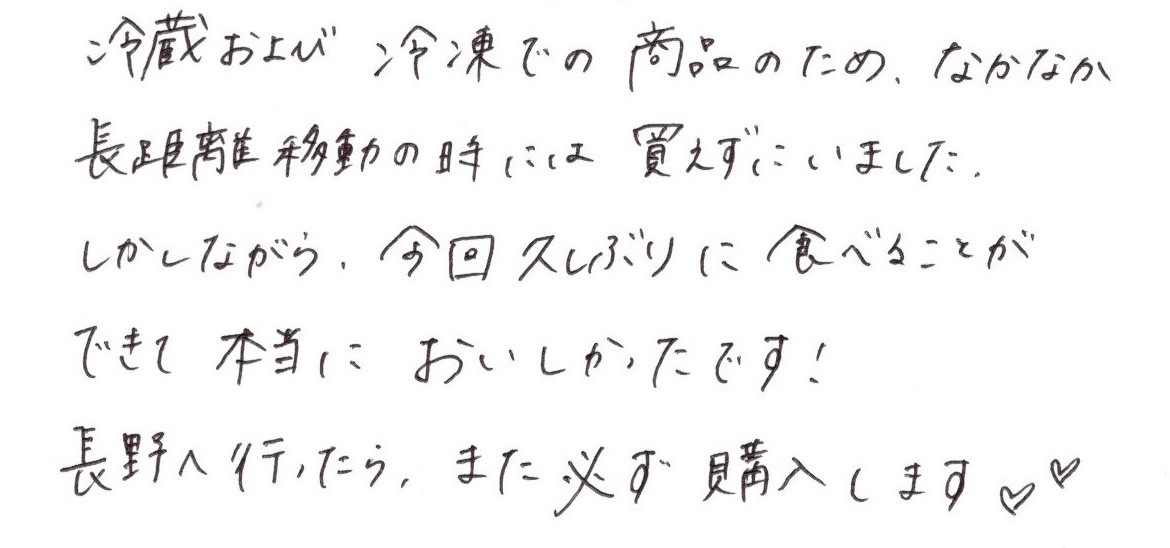 冷蔵および 冷凍での 商品のため、なかなか
長距離移動の時には 買えずにいました.
しかしながら、今回久しぶりに食べることが
できて 本当に おいしかったです!
長野へ行ったら、また必ず購入します♡♡